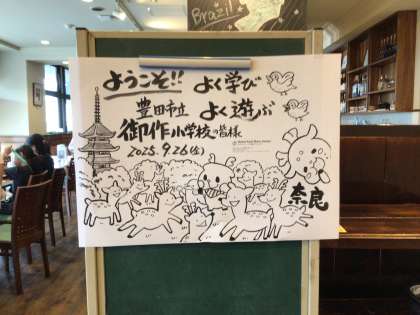 Brazil
ようこそ!! よく学び
豊田市立 よく遊ぶ
御作小学校の皆様
2025.9.26(金)
奈良